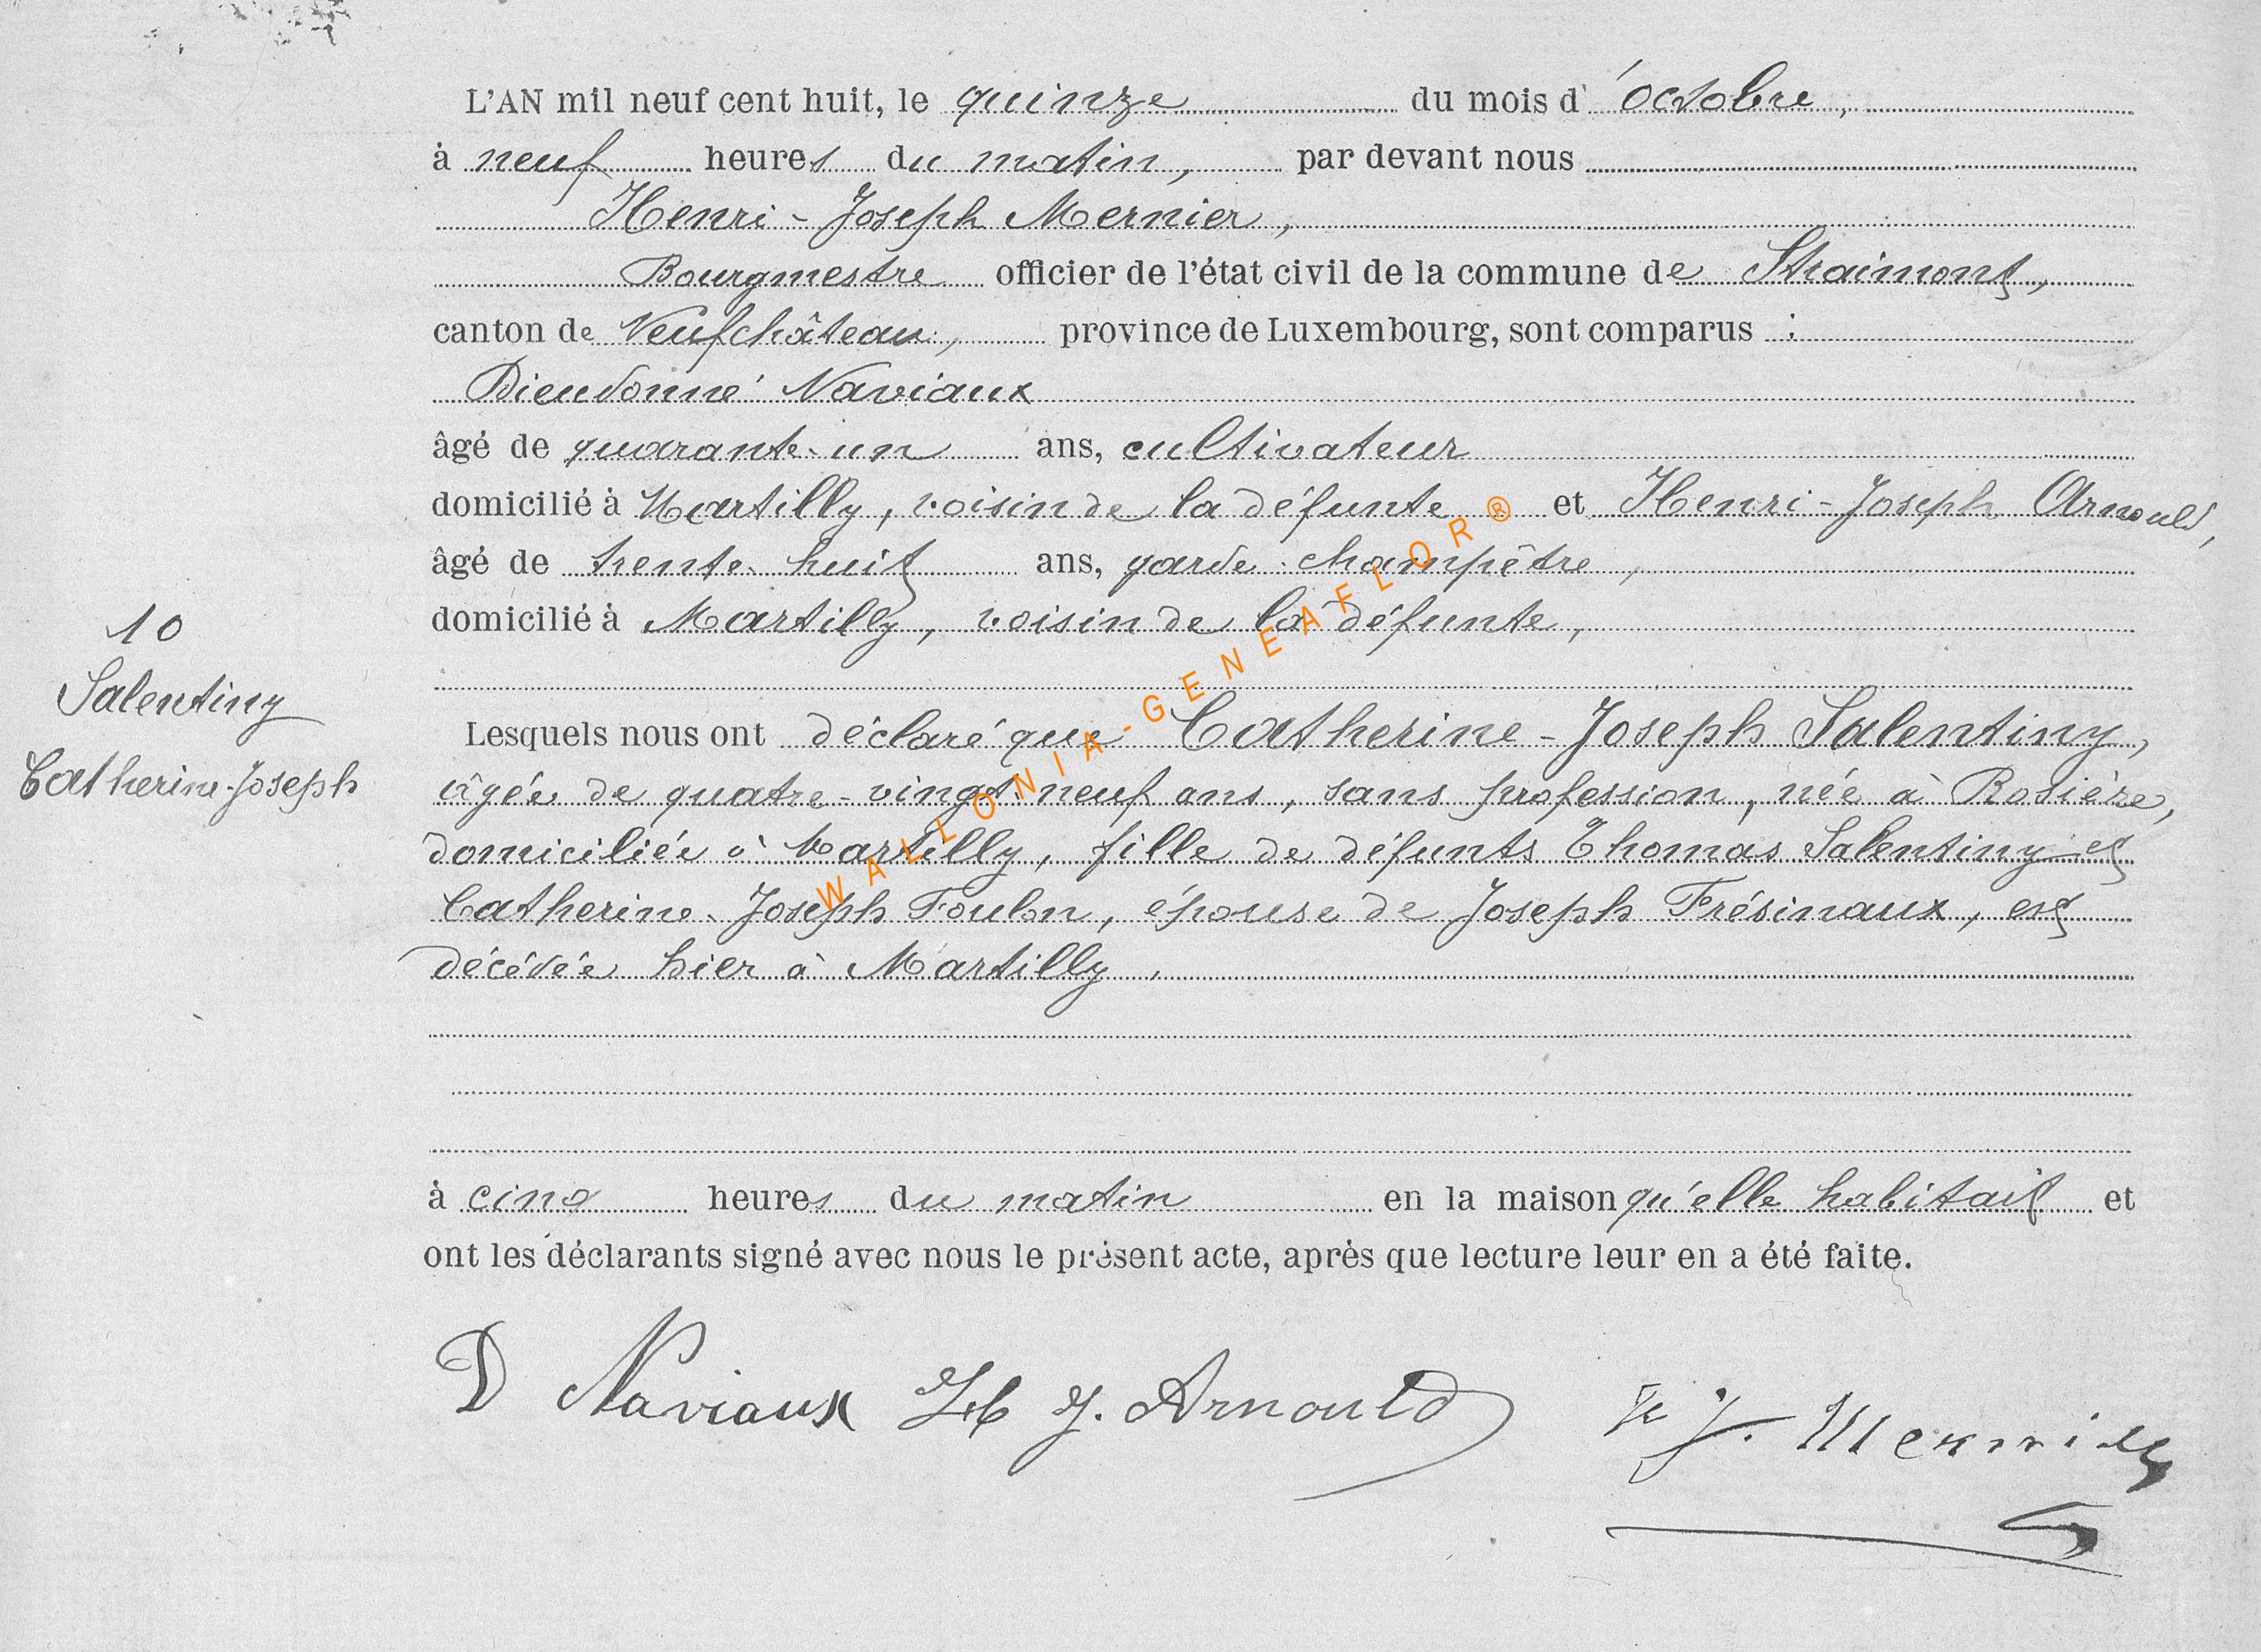 L'AN mil neuf cent huit, le quinze du mois d'octobre,
à neuf heures du matin, par devant nous
Henri-Joseph Mernier,
Bourgmestre officier de l'état civil de la commune de Straimont,
canton de Neufchâteau, province de Luxembourg, sont comparus :
Dieudonné Naviaux
âgé de quarante-un ans, cultivateur
domicilié à Martilly, voisin de la défunte et Henri-Joseph Arnould,
âgé de trente-huit ans, garde-champêtre,
domicilié à Martilly, voisin de la défunte,
10
Salentiny
Catherine-Joseph
Lesquels nous ont déclaré que Catherine-Joseph Salentiny,
âgée de quatre-vingt-neuf ans, sans profession, née à Rosière,
domiciliée à Martilly, fille de défunts Thomas Salentiny et
Catherine-Joseph Foulon, épouse de Joseph Frésinaux, est
décédée hier à Martilly,
à cinq heures du matin en la maison qu'elle habitait et
ont les déclarants signé avec nous le présent acte, après que lecture leur en a été faite.
D Naviaux H J. Arnould H J. Mernier
WALLONIA-GENEAFLOR®